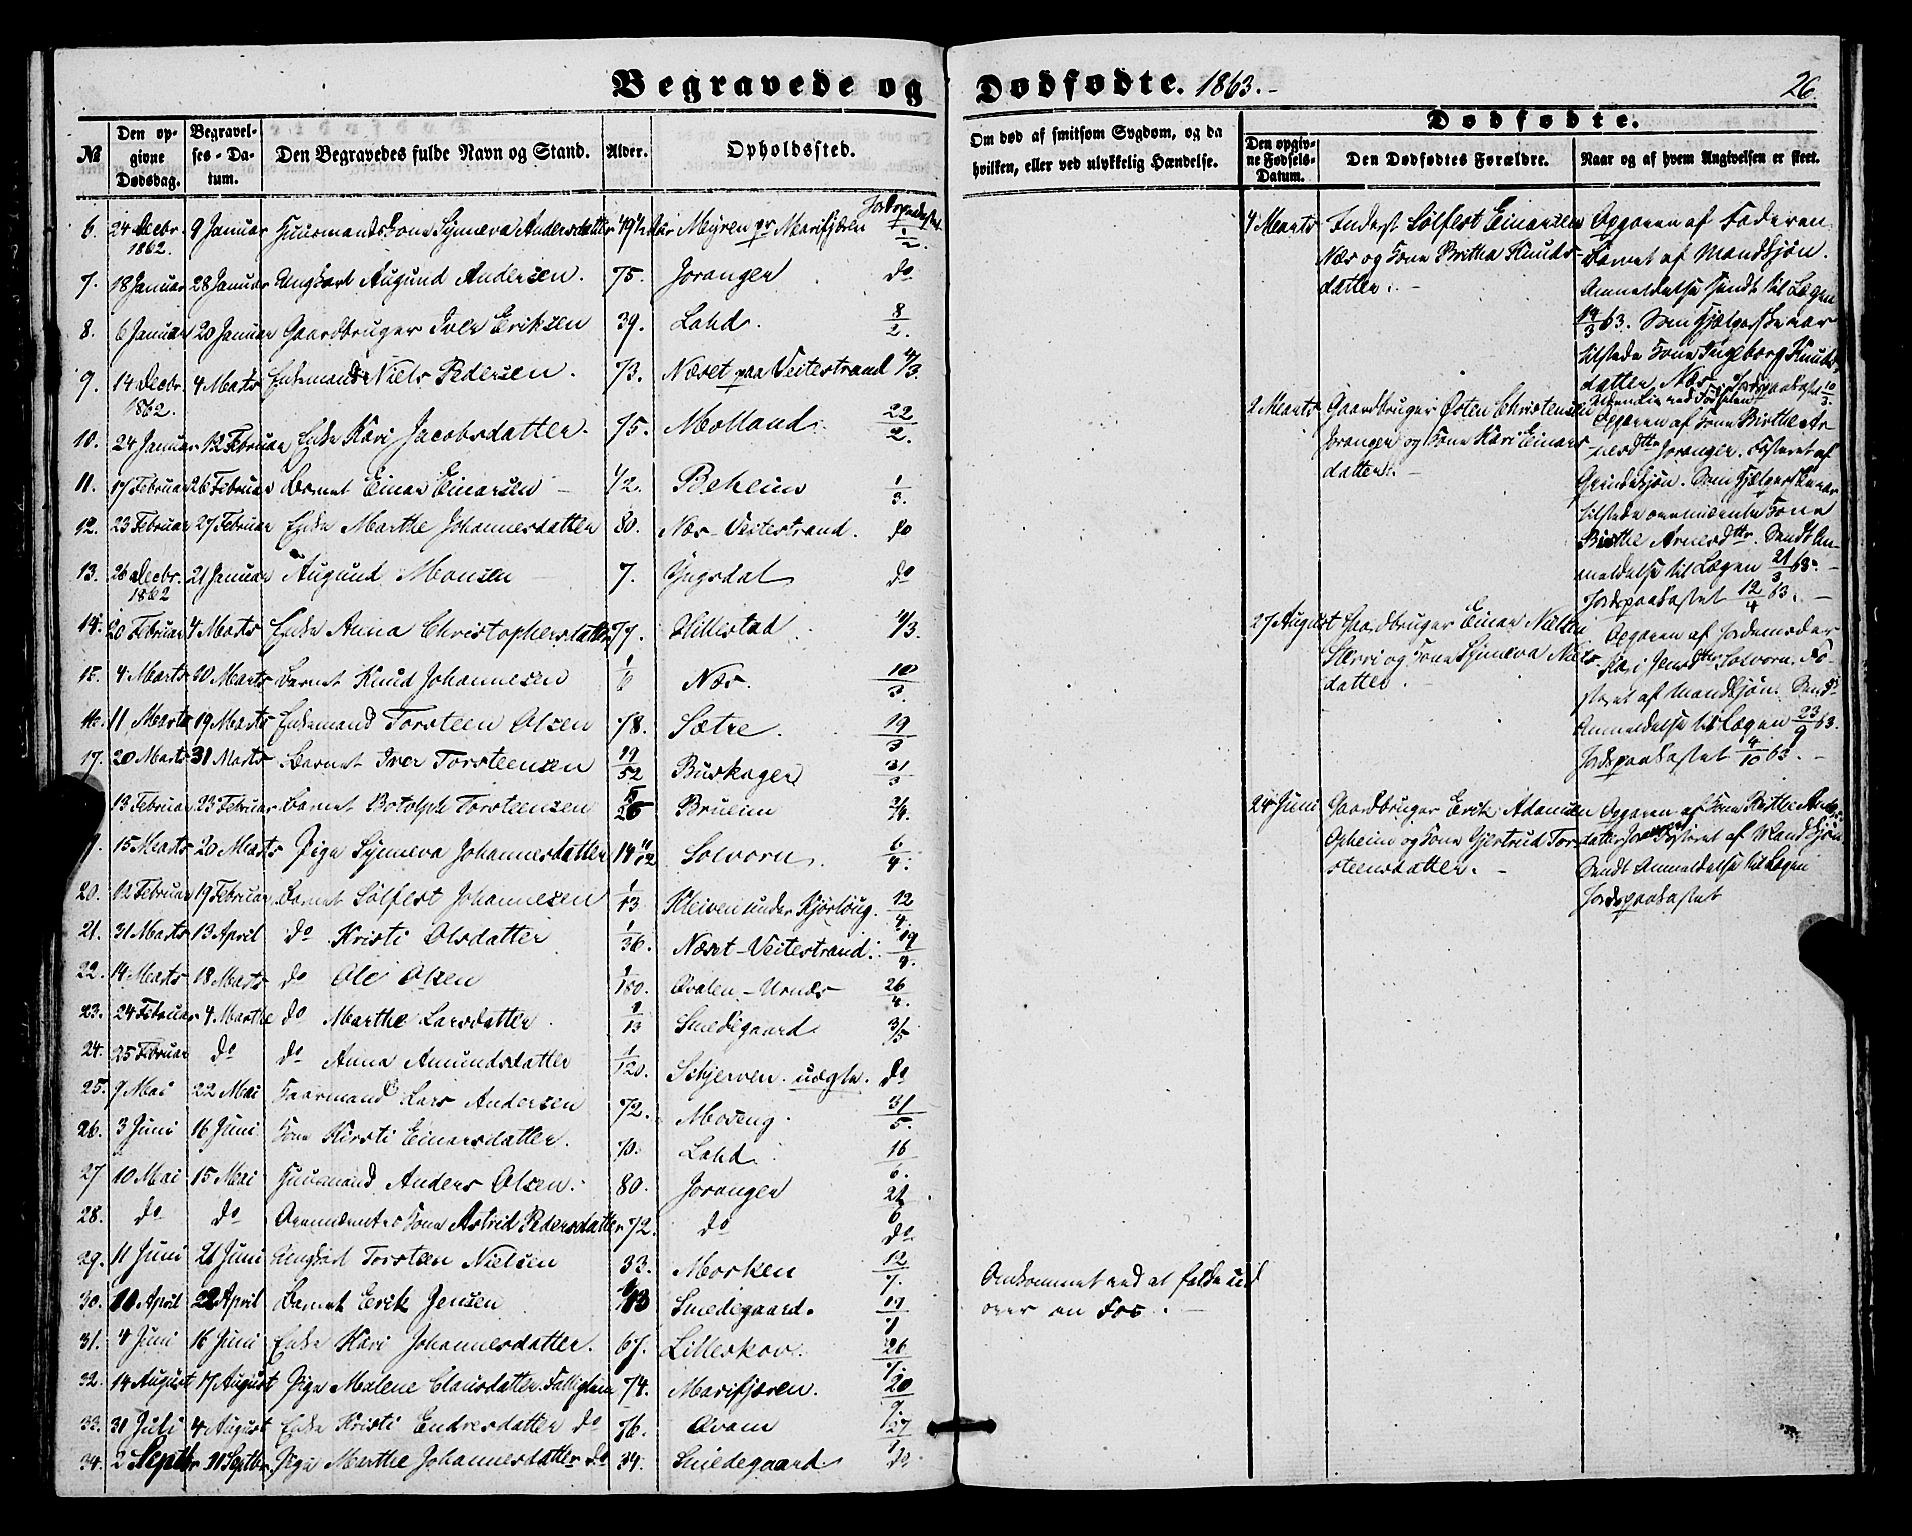 Begravede og Dødfødte. 1863.-
26.
№
Den opgivne Dødsdag.
Begravelses-Datum.
Den Begravedes fulde Navn og Stand.
Alder.
Opholdssted.
Om død af smitsom Sygdom, og da hvilken, eller ved ulykkelig Hændelse.
Dødfødte.
Den opgivne Fødsels-Datum.
Den Dødfødtes Forældre.
Naar og af hvem Angivelsen er skeet.
Jordspaakastet
6. 24 Decbr. 1862. 9 Januar Huusmandskone Synneva Andersdatter 49½ Aar Myren pr Marifjæren 1/2.
7. 18 Januar 28 Januar Ungkarl Augund Andersen. 75. Joranger do
8. 6 Januar 20 Januar Gaardbruger Iver Eriksen 39. Lahd. 8/2.
9. 14 Decbr. 1862. 4 Marts Enkemand Niels Pedersen. 73. Næset paa Veitestrand 4/3.
10. 24 Januar 12 Februar Enke Kari Jacobsdatter. 75. Molland. 22/2.
11. 17 Februar 26 Februar Barnet Einar Einarsen - 1/2. Beheim 1/3.
12. 23 Februar 27 Februar Enke Marthe Johannesdatter 80. Næs Veitestrand. do
13. 26 Decbr. 1862 21 Januar Augund Monsen 7. Yngsdal do
14. 20 Februar 4 Marts Enke Anna Christophersdatter 77. Hillestad 4/3.
15. 4 Marts 10 Marts Barnet Knud Johannesen 1/6 Næs. 10/3.
16. 11 Marts 19 Marts Enkemand Torsteen Olsen 78. Sætre. 19/3
17. 20 Marts 31 Marts Barnet Iver Torsteensen 19/52 Buskager 31/3
13 Februar 23 Februar Barnet Botolph Torsteensen Brueim 2/4.
15 Marts 20 Marts Pige Synneva Johannesdatter 14 Solvorn. 6/4.
20. 12 Februar 19 Februar Barnet Sølfest Johannesen 1/13 Kleiven under Kjørloug. 12/4
21. 31 Marts 13 April do Kristi Olsdatter 1/36. Næset - Veitestrand. 19/4.
22. 14 Marts 18 Marts do Ole Olsen Qvalen - Urnæs 26/4.
23. 24 Februar 4 Marthe do Marthe Larsdatter. Smedegaard. 3/5
24. 25 Februar do do Anna Amundsdatter 1/120. Schjerven. uægte. do
25. 9 Mai 22 Mai Kaarmand Lars Andersen 72. Moseng. 31/5.
26. 3 Juni 16 Juni Kone Kirsti Einarsdatter. 70. Lahd. 16/6.
27 10 Mai 15 Mai Huusmand Anders Olsen. 80. Joranger 21/6
28. do do Ovennævntes Kone Astrid Pedersdatter 72. do do
29. 11 Juni 21 Juni Ungkarl Torsteen Nielsen 33. Morken 12/7. Omkommet ved at falde ud
over en Fos.
30. 10 April 22 April Barnet Erik Jensen Smedegaard.
31. 4 Juni 16 Juni Enke Kari Johannesdatter. 67. Lilleskov. 26/7.
32. 14 August 17 August Pige Malene Clausdatter. Fattiglem 74. Marifjæren. 20
33. 31 Juli 4 August Enke Kristi Endresdatter do 76. Qvam 27
34. 2 Septbr 11 Septbr. Pige Marthe Johannesdatter do 34. Smedegaard do
4 Marts Inderst Sølfest Einarsen
Næs og Kone Britha Knuds-
datter. -
Opgaven af Faderen.
Barnet af Mandkjøn.
Anmeldelse sendt til Lægen
19/3 63. Som Hjælperske var
tilstede Kone Ingeborg Knuds-
datter Næs. Jordspaakastet 10/3.
2 Marts Gaardbruger Østen Christensen
Joranger og Kone Kari Einars
datter. -
Opgaven af Kone Birthe Ar-
nesdtr Joranger. Fosteret af
Qvindekjøn. Som Hjælperske var
tilstede ovennævnte Kone
Birthe Arnesdtr. Sendt An-
meldelse til Lægen 21/3 63. -
Jordspaakastet 12/4 63. -
27 August Gaardbruger Einar Nielsen
og Kone Synneva Niels-
datter. -
Opgaven af Jordemoder
Kari Jensdtr Solvorn. Fo-
steret af Mandkjøn. Sendt
Anmeldelse til Lægen 23/9 63.
Jordspaakastet 4/10 63. -
24 Juni Gaardbruger Erik Adamsen
Opheim og Kone Gjertrud Tor-
steensdatter. -
Opgaven af Kone Birthe
datter Joranger Fosteret af Mandkjøn
Sendt Anmeldelse til Lægen
Jordspaakastet